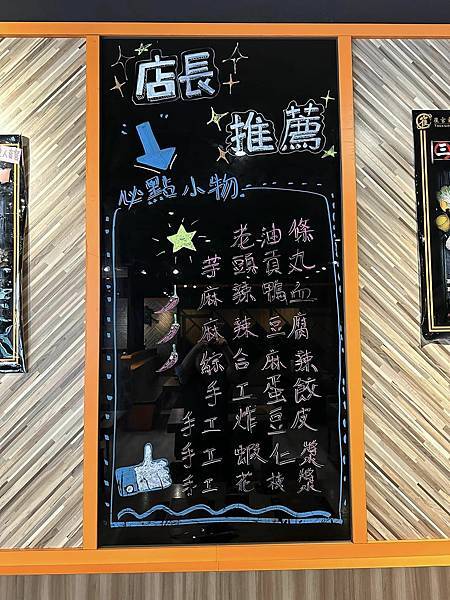 店長
推薦
必點小物
老油條
芋頭貢丸
麻辣鴨血
麻辣豆腐
綜合麻辣
手工蛋餃
手工炸豆皮
手工蝦仁漿
手工花枝漿